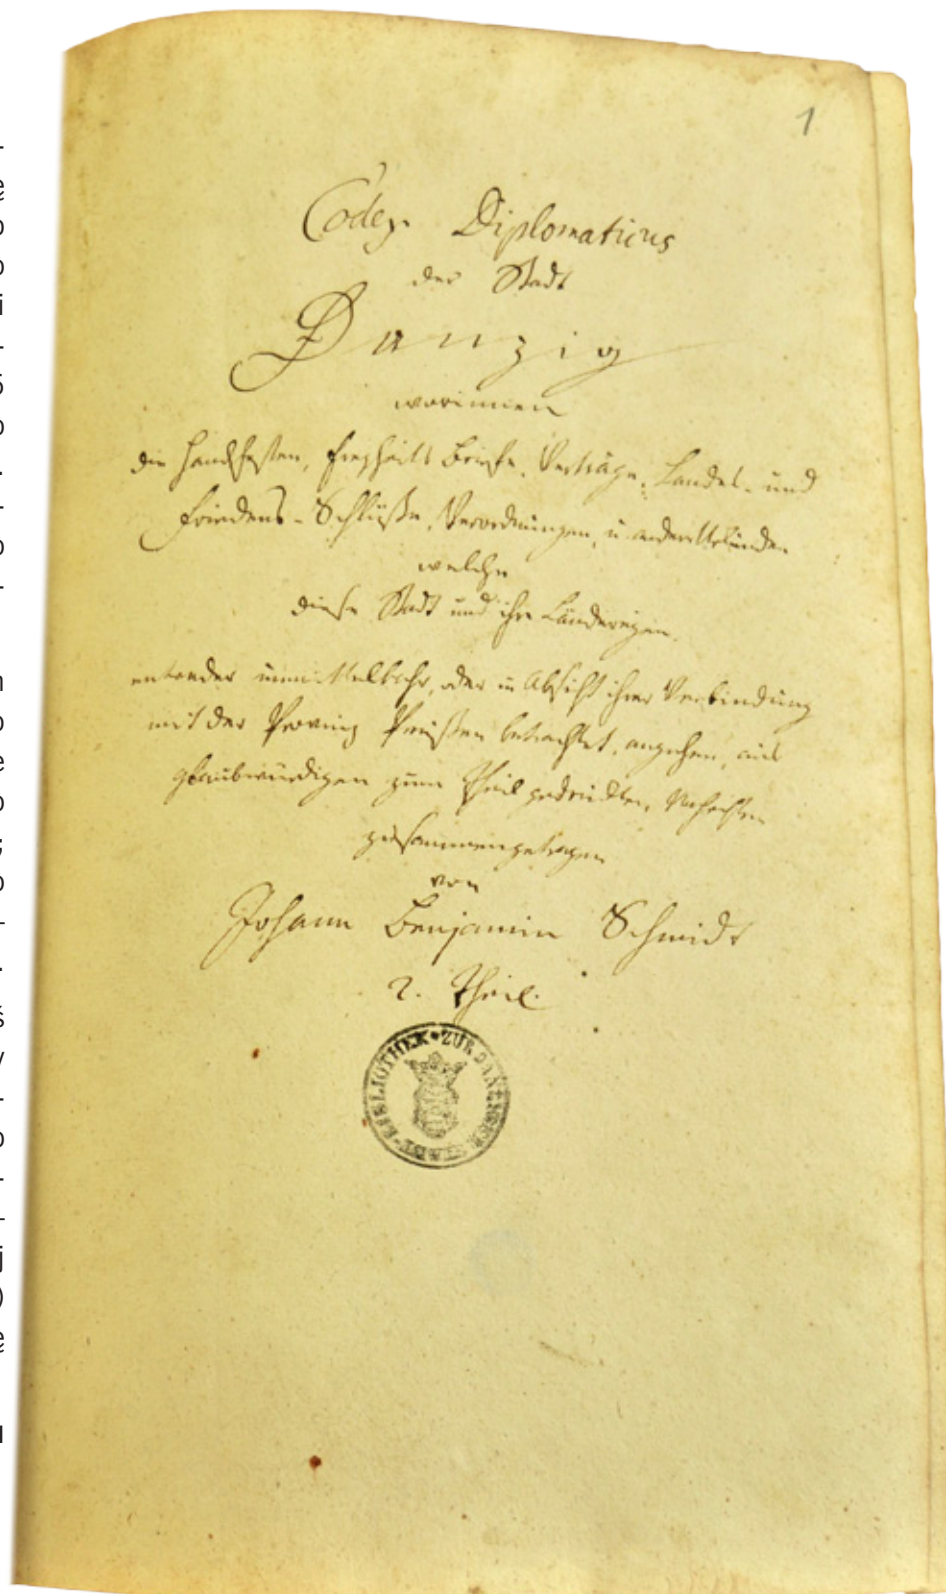 1
Codex Diplomaticus
der Stadt
Danzig
worinnen
die Handfesten, Freyheits Briefe, Verträge, Landes- und
Friedens-Schlüße, Verordnungen, u. andere Urkunden
welche
diese Stadt und ihre Ländereyen
entweder unmittelbahr, oder in Absicht ihrer Verbindung
mit der Proving Preußen betrachtet, angehen, aus
glaubwürdigen zum Theil gedruckten,
zusammengetragen
von
Johann Benjamin Schmidt
2. Theil.
BIBLIOTHEK • ZUR DANZIGER STADT